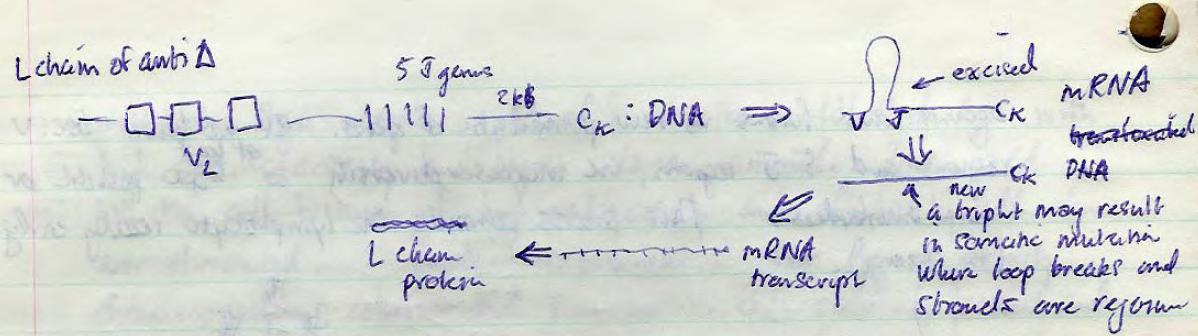 L chain of anti Δ
5 J genes
2kb
Cκ : DNA ⇒
V₂
excised
V J Cκ
mRNA
translocated
DNA
new Cκ
a triplet may result
in somatic mutation
where loop breaks and
strands are rejoin
mRNA
transcript
L chain
protein